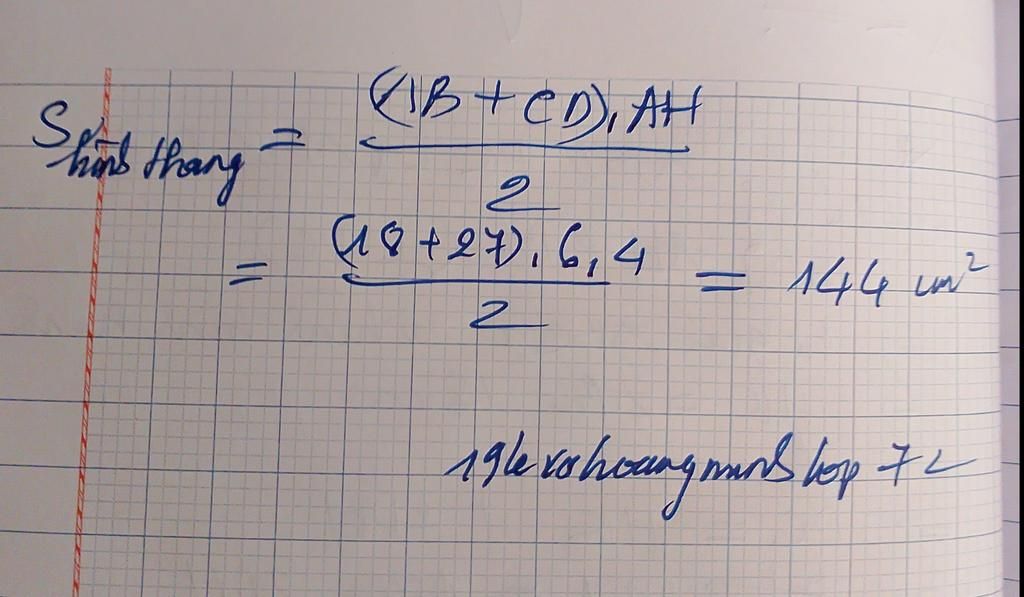 S hình thang = (AB + CD).AH / 2
= (18 + 27).6,4 / 2 = 144 cm²
19 le hoang minh lop 7